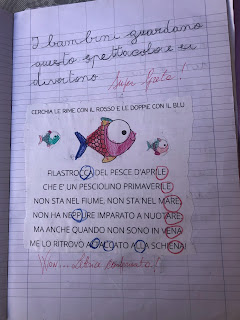 I bambini guardano
questo spettacolo e si
divertono
Super Greta!
CERCHIA LE RIME CON IL ROSSO E LE DOPPIE CON IL BLU
FILASTROCCA DEL PESCE D'APRILE
CHE E' UN PESCIOLINO PRIMAVERILE
NON STA NEL FIUME, NON STA NEL MARE
NON HA NEPPURE IMPARATO A NUOTARE
MA ANCHE QUANDO NON SONO IN VENA
ME LO RITROVO ATTACCATO ALLA SCHIENA!